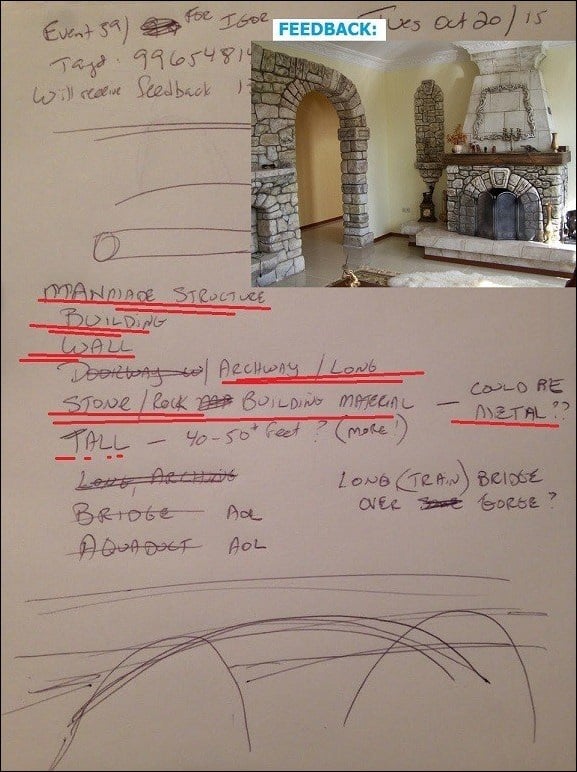 FEEDBACK:
Event 59/ FOR IGOR Tues Oct 20/15
Tag#: 99654814
Will receive feedback
MANMADE STRUCTURE
BUILDING
WALL
DOORWAY w/ ARCHWAY / LONG
STONE/ROCK BUILDING MATERIAL — COULD BE METAL??
TALL — 40-50+ feet? (MORE!)
LONG, ARCHING
LONG (TRAIN) BRIDGE
OVER GORGE?
BRIDGE AOL
AQUADUCT AOL